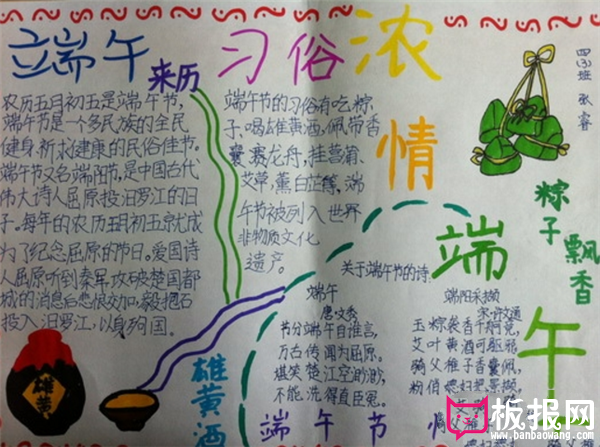 端午
来历
习俗
浓
情
端
午
四(3)班 张睿
粽子飘香
农历五月初五是端午节,
端午节是一个多民族的全民
健身,祈求健康的民俗佳节。
端午节又名端阳节,是中国古代
伟大诗人屈原投汨罗江的日
子。每年的农历五月初五就成
为了纪念屈原的节日。爱国诗
人屈原听到秦军攻破楚国都
城的消息后悲恨交加,毅抱石
投入汨罗江,以身殉国。
端午节的习俗有吃粽
子,喝雄黄酒,佩带香
囊,赛龙舟,挂菖蒲、
艾草,薰白芷等,端
午节被列入世界
非物质文化
遗产。
关于端午节的诗:
端午
唐·文秀
节分端午自谁言,
万古传闻为屈原。
堪笑楚江空渺渺,
不能洗得直臣冤。
端阳采撷
玉粽袭香
艾叶黄酒可驱邪。
骑父稚子香囊佩,
粉俏媳妇把景撷。
雄黄
雄黄酒
端午节情
板报网
www.banbaowang.com